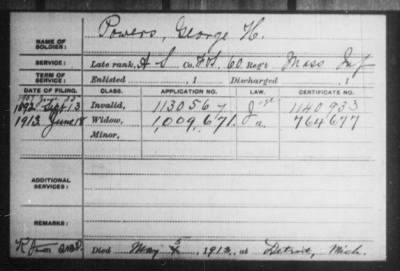 NAME OF SOLDIER: Powers, George H.
SERVICE: Late rank, A S Co. F&S, 60 Reg't Mass Inf
TERM OF SERVICE: Enlisted , 1 Discharged , 1
DATE OF FILING. CLASS. APPLICATION NO. LAW. CERTIFICATE NO.
1892 Sept 13 Invalid, 1130567 1140933
1913 June 18 Widow, 1,009,671 a. 764677
Minor,
ADDITIONAL SERVICES:
REMARKS:
Died May 5, 1913, at Detroit, Mich.